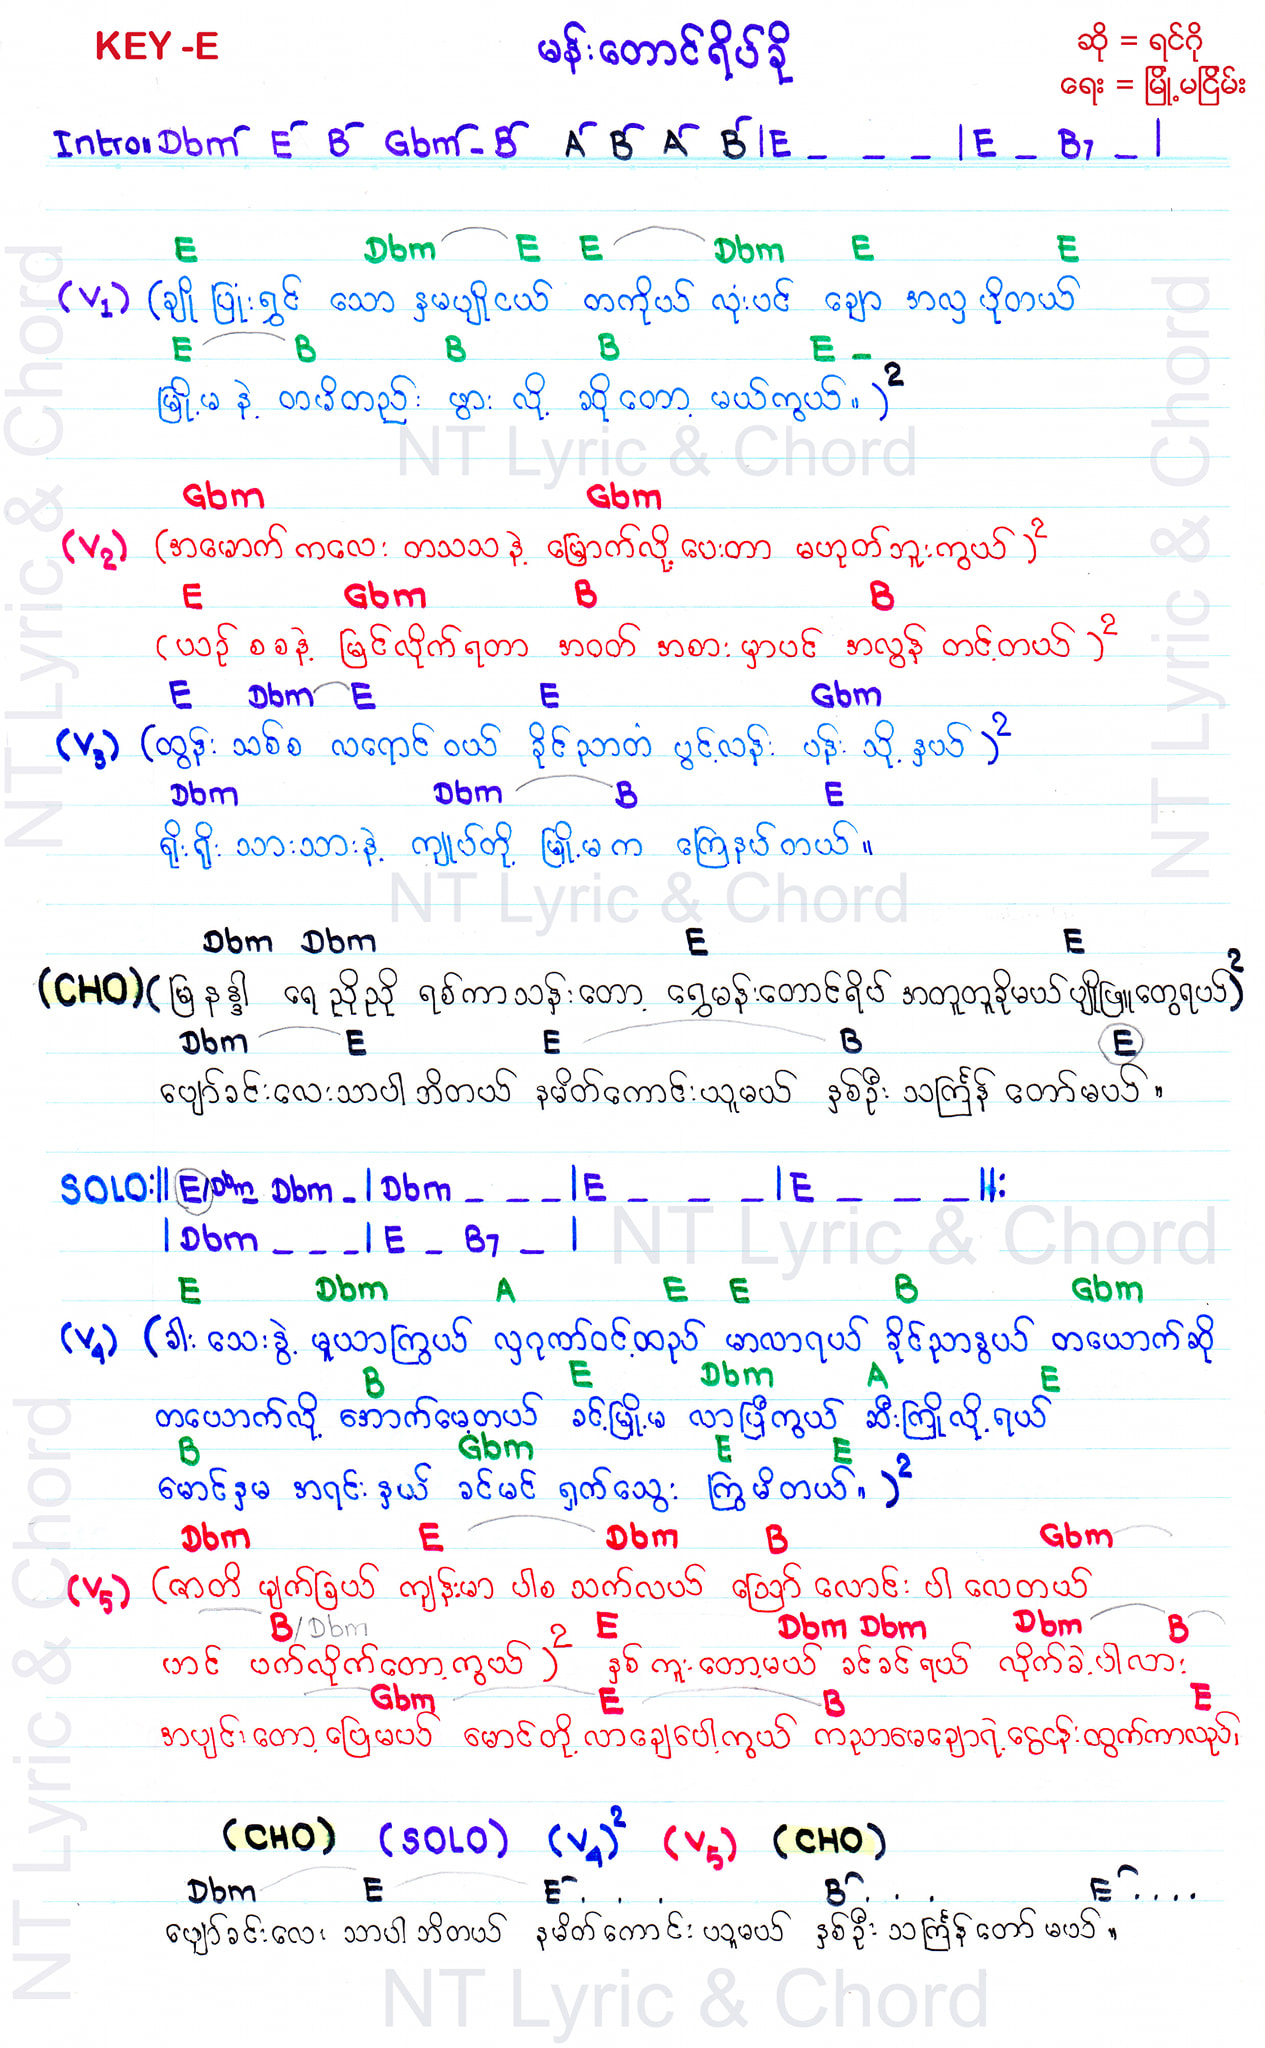 KEY -E
မန်းတောင်ရိပ်ခို
ဆို = ရင်ဂို
ရေး = မြို့မငြိမ်း
Intro။ Dbm E B Gbm - B A B A B | E _ _ _ | E _ B7 _ |
E Dbm E E Dbm E E
(V1) (ချို ပြုံးရွှင် သော နှမပျိုငယ် တကိုယ် လုံးပင် ချော အလှ ပိုတယ်
E B B B E -
မြို့မ နဲ့ တမိတည်း ဖွား လို့ ဆို တော့ မယ်ကွယ်။ )2
NT Lyric & Chord
Gbm Gbm
(V2) (အမောက် ကလေး တသသ နဲ့ မြှောက်လို့ ပေးတာ မဟုတ်ဘူးကွယ် )2
E Gbm B B
(ယာဉ် စစနဲ့ မြင်လိုက်ရတာ အဝတ် အစား မှာပင် အလွန် တင့်တယ် )2
E Dbm E E Gbm
(V3) (ထွန်း သစ်စ လရောင် ဝယ် ခိုင်ညာတံ ပွင့်လန်း ပန်း သို့ နှယ် )2
Dbm Dbm B E
ရိုးရိုး သားသားနဲ့ ကျုပ်တို့ မြို့မ က ကြေနပ်တယ် ။
NT Lyric & Chord
Dbm Dbm E E
(CHO) (မြနန္ဒါ ရေ ညိုညို ရစ်ကာသန်းတော့ ရွှေမန်းတောင်ရိပ် အတူတူခိုမယ် ပျိုဖြူတွေရယ်)2
Dbm E E B E
ပျော်ခင်းလေးသာပါ ဘိတယ် နမိတ်ကောင်းယူမယ် နှစ်ဦး သင်္ကြန် တော်မယ် ။
SOLO:|| E/Dbm Dbm _ | Dbm _ _ _ | E _ _ _ | E _ _ _ ||:
| Dbm _ _ _ | E _ B7 _ |
NT Lyric & Chord
E Dbm A E E B Gbm
(V4) (ခါး သေးနွဲ့ မူယာကြွယ် လှဂုဏ်ဝင့်ထည် မာလာရယ် ခိုင်ညာနွယ် တယောက်ဆို
B E Dbm A E
တယောက်လို့ အောက်မေ့တယ် ခင့်မြို့မ လာပြီကွယ် ဆီးကြိုလို့ ရယ်
B Gbm E E
မောင်နှမ အရင်း နှယ် ခင်မင် ရှက်သွေး ကြွမိတယ်။ )2
Dbm E Dbm B Gbm
(V5) (ဇာတိ မျက်ခြယ် ကျန်းမာ ပါစ သက်လယ် သြော် လောင်း ပါ လေတယ်
B/Dbm E Dbm Dbm Dbm B
ဟင် ပက်လိုက်တော့ကွယ် )2 နှစ် ကူးတော့မယ် ခင်ခင်ရယ် လိုက်ခဲ့ပါလား
Gbm E B E
အပျင်းတော့ ပြေမယ် မောင်တို့ လာချေပေါ့ကွယ် ကညာမေချောရဲ့ ငွေငန်းထွက်ကာလည်၊
(CHO) (SOLO) (V4)2 (V5) (CHO)
Dbm E E . . . B . . . E . . . .
ပျော်ခင်းလေး သာပါဘိတယ် နမိတ်ကောင်း ယူမယ် နှစ်ဦး သင်္ကြန်တော် မယ် ။
NT Lyric & Chord
NT Lyric & Chord
NT Lyric & Chord
NT Lyric & Chord
NT Lyric & Chord